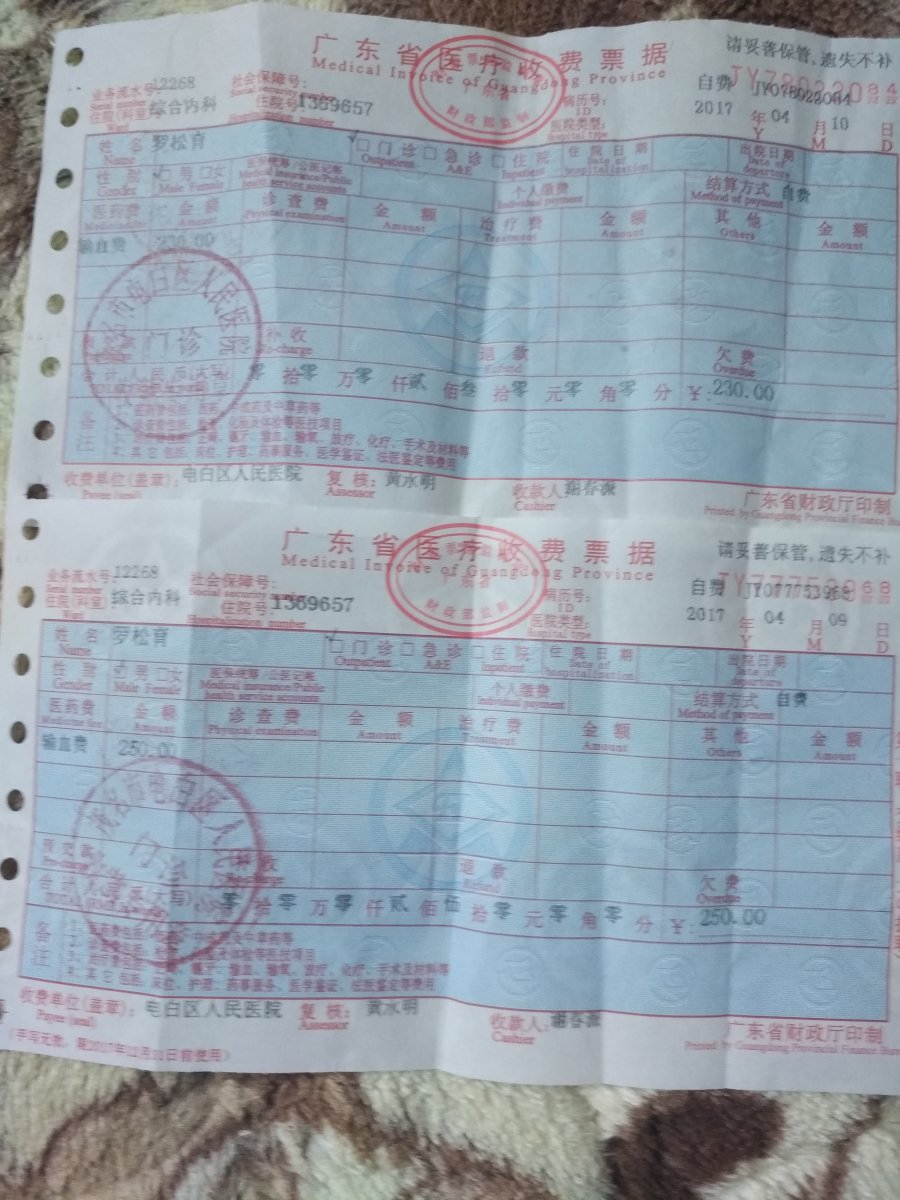 广东省医疗收费票据
Medical Invoice of Guangdong Province
请妥善保管,遗失不补
业务流水号 12268
社会保障号:
Social security number
自费 JY078022084
住院(科室) 综合内科
住院号 1369657
Hospitalization number
病历号:
ID
2017 年 04 月 10 日
Y M D
Ward
医院类型:
Hospital type
姓名 罗松育
Name
门诊 急诊 住院
Outpatient A&E Inpatient
住院日期
Date of hospitalization
出院日期
Date of departure
性别 男 女
Gender Male Female
医保统筹/公医记帐
Medical insurance/Public health service accounts
个人缴费
Individual payment
结算方式 自费
Method of payment
医药费 金额 诊查费 金额 治疗费 金额 其他 金额
Amount Physical examination Amount Treatment Amount Others Amount
输血费 230.00
门诊
补收
退款
Refund
欠费
Overdue
零 拾 零 万 零 仟 贰 佰 叁 拾 零 元 零 角 零 分 ¥:230.00
备注
收费单位(盖章): 电白区人民医院
Payee (seal)
复核: 黄永明
Assessor
收款人:
Cashier
广东省财政厅印制
Printed by Guangdong Provincial Finance
广东省医疗收费票据
Medical Invoice of Guangdong Province
请妥善保管,遗失不补
业务流水号 12268
Serial number
社会保障号:
Social security number
自费 JY077753968
住院(科室) 综合内科
Ward
住院号 1369657
Hospitalization number
病历号:
ID
2017 年 04 月 09 日
Y M D
医院类型:
Hospital type
姓名 罗松育
Name
门诊 急诊 住院
Outpatient A&E Inpatient
住院日期
Date of hospitalization
出院日期
Date of departure
性别 男 女
Gender Male Female
医保统筹/公医记帐
Medical insurance/Public health service accounts
个人缴费
Individual payment
结算方式 自费
Method of payment
医药费 金额 诊查费 金额 治疗费 金额 其他 金额
Medicine fee Amount Physical examination Amount Treatment Amount Others Amount
输血费 250.00
门诊
退款
Refund
欠费
Overdue
零 拾 零 万 零 仟 贰 佰 伍 拾 零 元 零 角 零 分 ¥:250.00
备注
收费单位(盖章): 电白区人民医院
Payee (seal)
复核: 黄永明
Assessor
收款人:
Cashier
广东省财政厅印制
Printed by Guangdong Provincial Finance